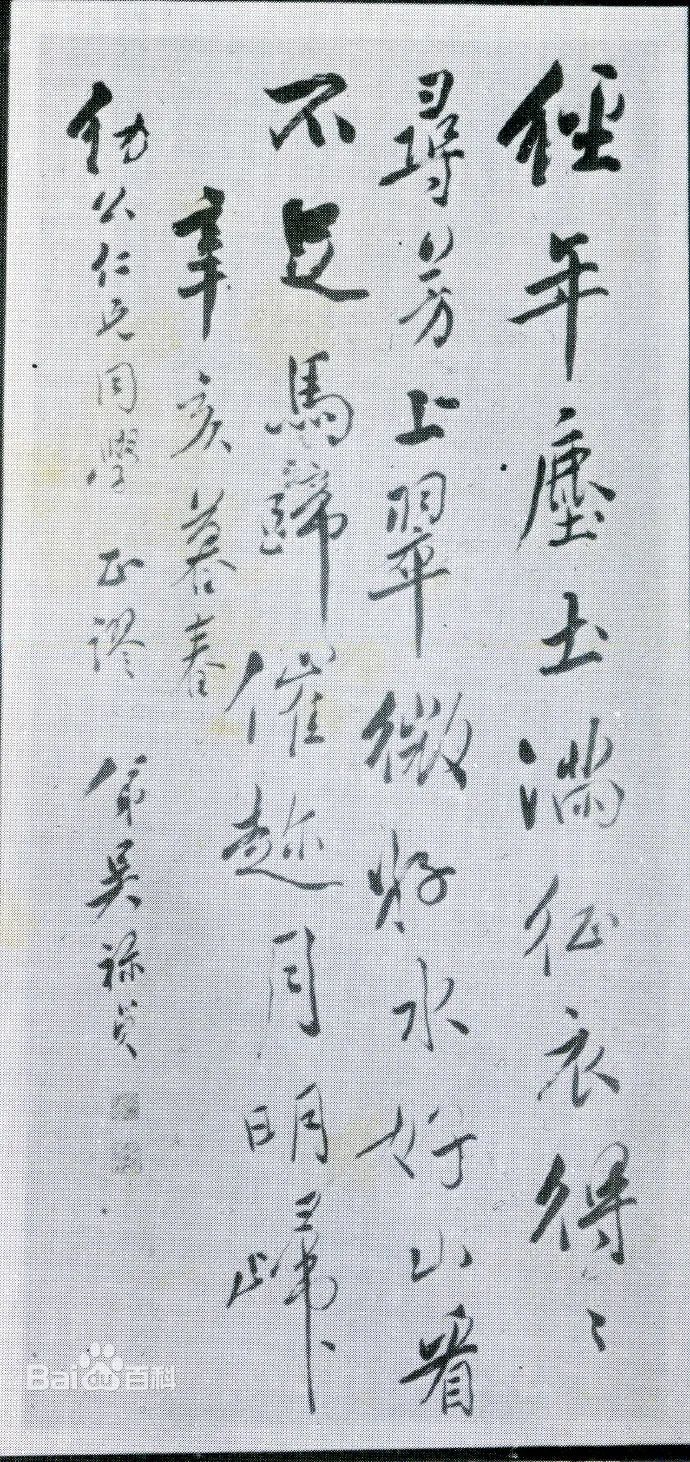 經年塵土滿征衣得〻
尋芳上翠微好水好山看
不足馬蹄催趁月明歸
辛亥暮春
仁兄同學正謬 弟吳祿貞
Bai百科